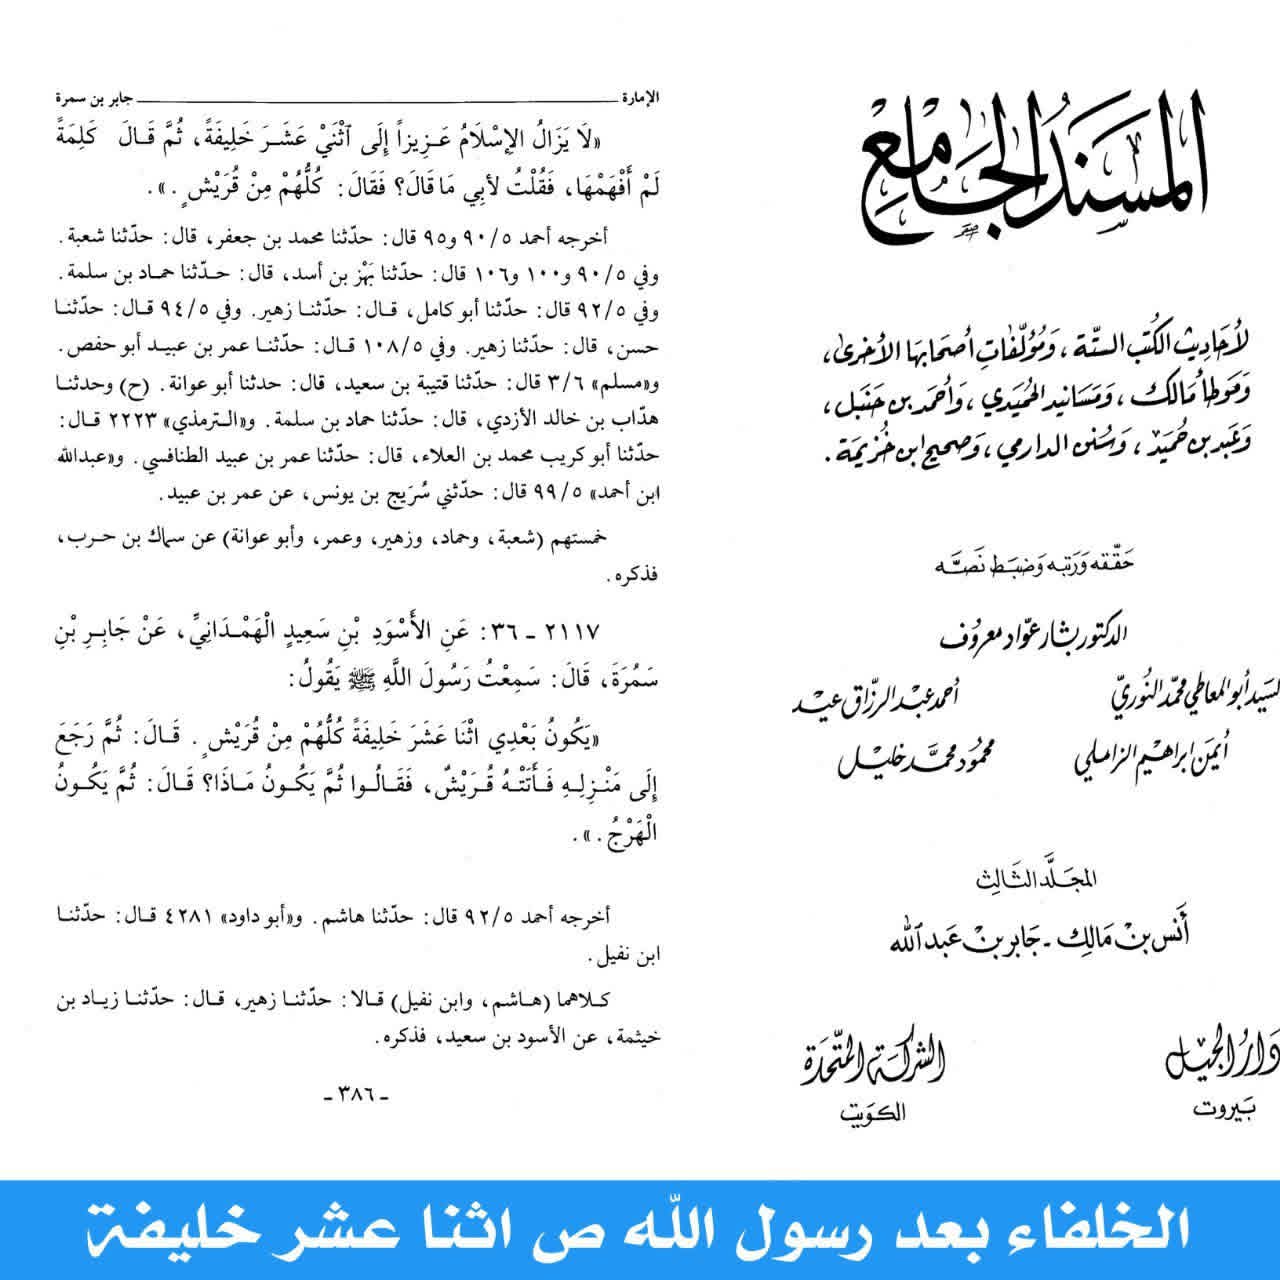 المسند الجامع
لأحاديث الكتب الستة، ومؤلفات أصحابها الأخرى،
وموطأ مالك، ومسانيد الحميدي، وأحمد بن حنبل،
وعبد بن حميد، وسنن الدارمي، وصحيح ابن خزيمة.
حققه ورتبه وضبط نصه
الدكتور بشار عواد معروف
السيد أبو المعاطي محمد النوري
أحمد عبد الرزاق عيد
أيمن إبراهيم الزاملي
محمود محمد خليل
المجلد الثالث
أنس بن مالك - جابر بن عبد الله
دار الجيل
بيروت
الشركة المتحدة
الكويت
الإمارة ـــــ جابر بن سمرة
«لَا يَزَالُ الإِسْلَامُ عَزِيزاً إِلَى اثْنَيْ عَشَرَ خَلِيفَةً، ثُمَّ قَالَ كَلِمَةً
لَمْ أَفْهَمْهَا، فَقُلْتُ لأَبِي مَا قَالَ؟ فَقَالَ: كُلُّهُمْ مِنْ قُرَيْشٍ.».
أخرجه أحمد ٩٠/٥ و٩٥ قال: حدّثنا محمد بن جعفر، قال: حدّثنا شعبة.
وفي ٩٠/٥ و١٠٠ و١٠٦ قال: حدّثنا بَهْز بن أسد، قال: حدّثنا حماد بن سلمة.
وفي ٩٢/٥ قال: حدّثنا أبو كامل، قال: حدّثنا زهير. وفي ٩٤/٥ قال: حدّثنا
حسن، قال: حدّثنا زهير. وفي ١٠٨/٥ قال: حدّثنا عمر بن عبيد أبو حفص.
و«مسلم» ٣/٦ قال: حدّثنا قتيبة بن سعيد، قال: حدثنا أبو عوانة. (ح) وحدثنا
هدّاب بن خالد الأزدي، قال: حدّثنا حماد بن سلمة. و«الترمذي» ٢٢٢٣ قال:
حدّثنا أبو كريب محمد بن العلاء، قال: حدّثنا عمر بن عبيد الطنافسي. و«عبدالله
ابن أحمد» ٩٩/٥ قال: حدّثني سُرَيج بن يونس، عن عمر بن عبيد.
خمستهم (شعبة، وحماد، وزهير، وعمر، وأبو عوانة) عن سماك بن حرب،
فذكره.
٢١١٧ ـ ٣٦: عَنِ الأَسْوَدِ بْنِ سَعِيدٍ الْهَمْدَانِيِّ، عَنْ جَابِرِ بْنِ
سَمُرَةَ، قَالَ: سَمِعْتُ رَسُولَ اللَّهِ ﷺ يَقُولُ:
«يَكُونُ بَعْدِي اثْنَا عَشَرَ خَلِيفَةً كُلُّهُمْ مِنْ قُرَيْشٍ. قَالَ: ثُمَّ رَجَعَ
إِلَى مَنْزِلِهِ فَأَتَتْهُ قُرَيْشٌ، فَقَالُوا ثُمَّ يَكُونُ مَاذَا؟ قَالَ: ثُمَّ يَكُونُ
الْهَرْجُ.».
أخرجه أحمد ٩٢/٥ قال: حدّثنا هاشم. و«أبو داود» ٤٢٨١ قال: حدّثنا
ابن نفيل.
كلاهما (هاشم، وابن نفيل) قالا: حدّثنا زهير، قال: حدّثنا زياد بن
خيثمة، عن الأسود بن سعيد، فذكره.
ـ ٣٨٦ ـ
الخلفاء بعد رسول الله ص اثنا عشر خليفة